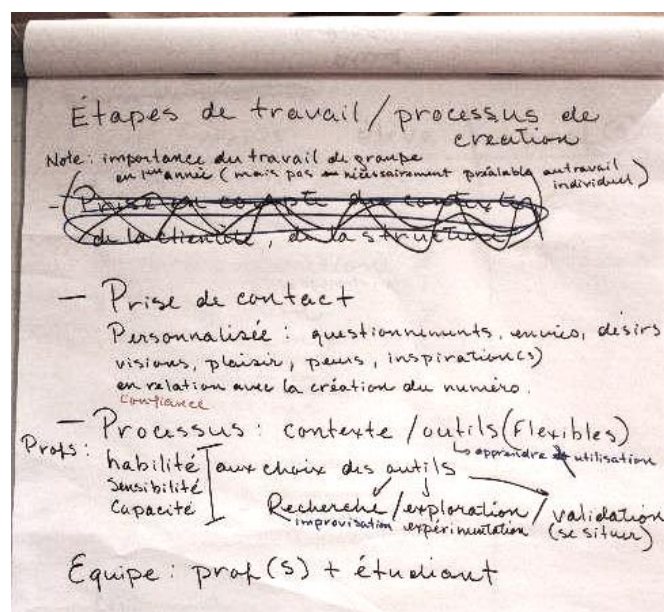 Étapes de travail / processus de
création
Note: importance du travail de groupe
en 1ère année (mais pas nécessairement préalable au travail
individuel)
- Prise en compte du contexte,
de la clientèle, de la structure
- Prise de contact
Personnalisée : questionnements, envies, désirs
visions, plaisir, peurs, inspiration(s)
en relation avec la création du numéro.
confiance
- Processus : contexte / outils (flexibles)
↳ apprendre utilisation
Profs:
habilité
Sensibilité
Capacité
aux choix des outils
Recherche / exploration / validation
improvisation expérimentation (se situer)
Équipe : prof(s) + étudiant